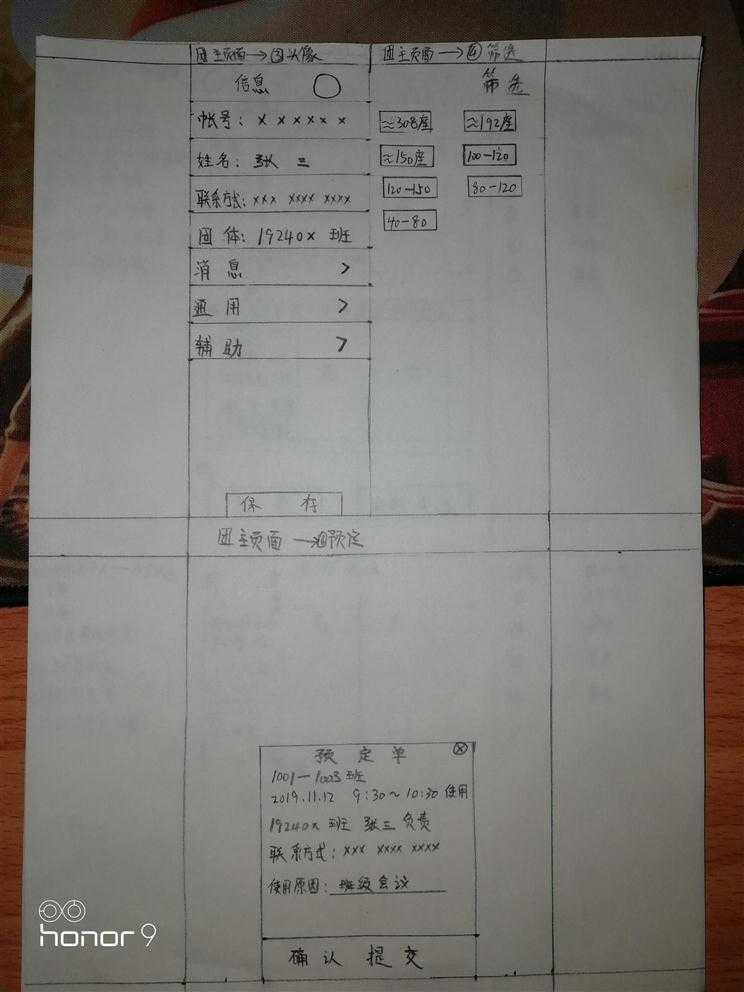 团主页面→③头像
信息
帐号：××××××
姓名：张 三
联系方式：××× ×××× ××××
团 体：19240× 班
消 息 >
通 用 >
辅 助 >
保 存
团主页面→④筛选
筛 选
≈308座 ≈192座
≈150座 100-120
120-150 80-120
40-80
团主页面→预定
预 定 单 ⊗
1001—1003 班
2019.11.12 9:30~10:30 使用
19240× 班 张三 负责
联系方式：××× ×××× ××××
使用原因：班级会议
确 认 提 交
honor 9